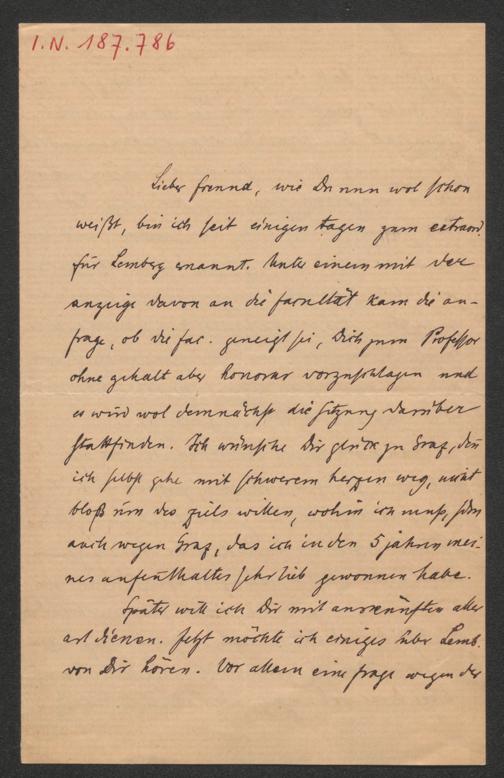 I.N. 187.786
Lieber freund, wie Du nun wol schon
weißt, bin ich seit einigen tagen zum extraord.
für Lemberg ernannt. Unter einem mit der
anzeige davon an die facultät kam die an-
frage, ob die fac. geneigt sei, Dich zum Professor
ohne gehalt aber honorar vorzuschlagen und
es wird wol demnächst die sitzung darüber
stattfinden. Ich wünsche Dir glück zu Graz, denn
ich selbst gehe mit schwerem herzen weg, nicht
bloß um des ziels willen, wohin ich muß, sondern
auch wegen Graz, das ich in den 5 jahren mei-
nes aufenthaltes sehr lieb gewonnen habe.
Später will ich Dir mit auskünften aller
art dienen. Jetzt möchte ich einiges über Lemb.
von Dir hören. Vor allem eine frage wegen der